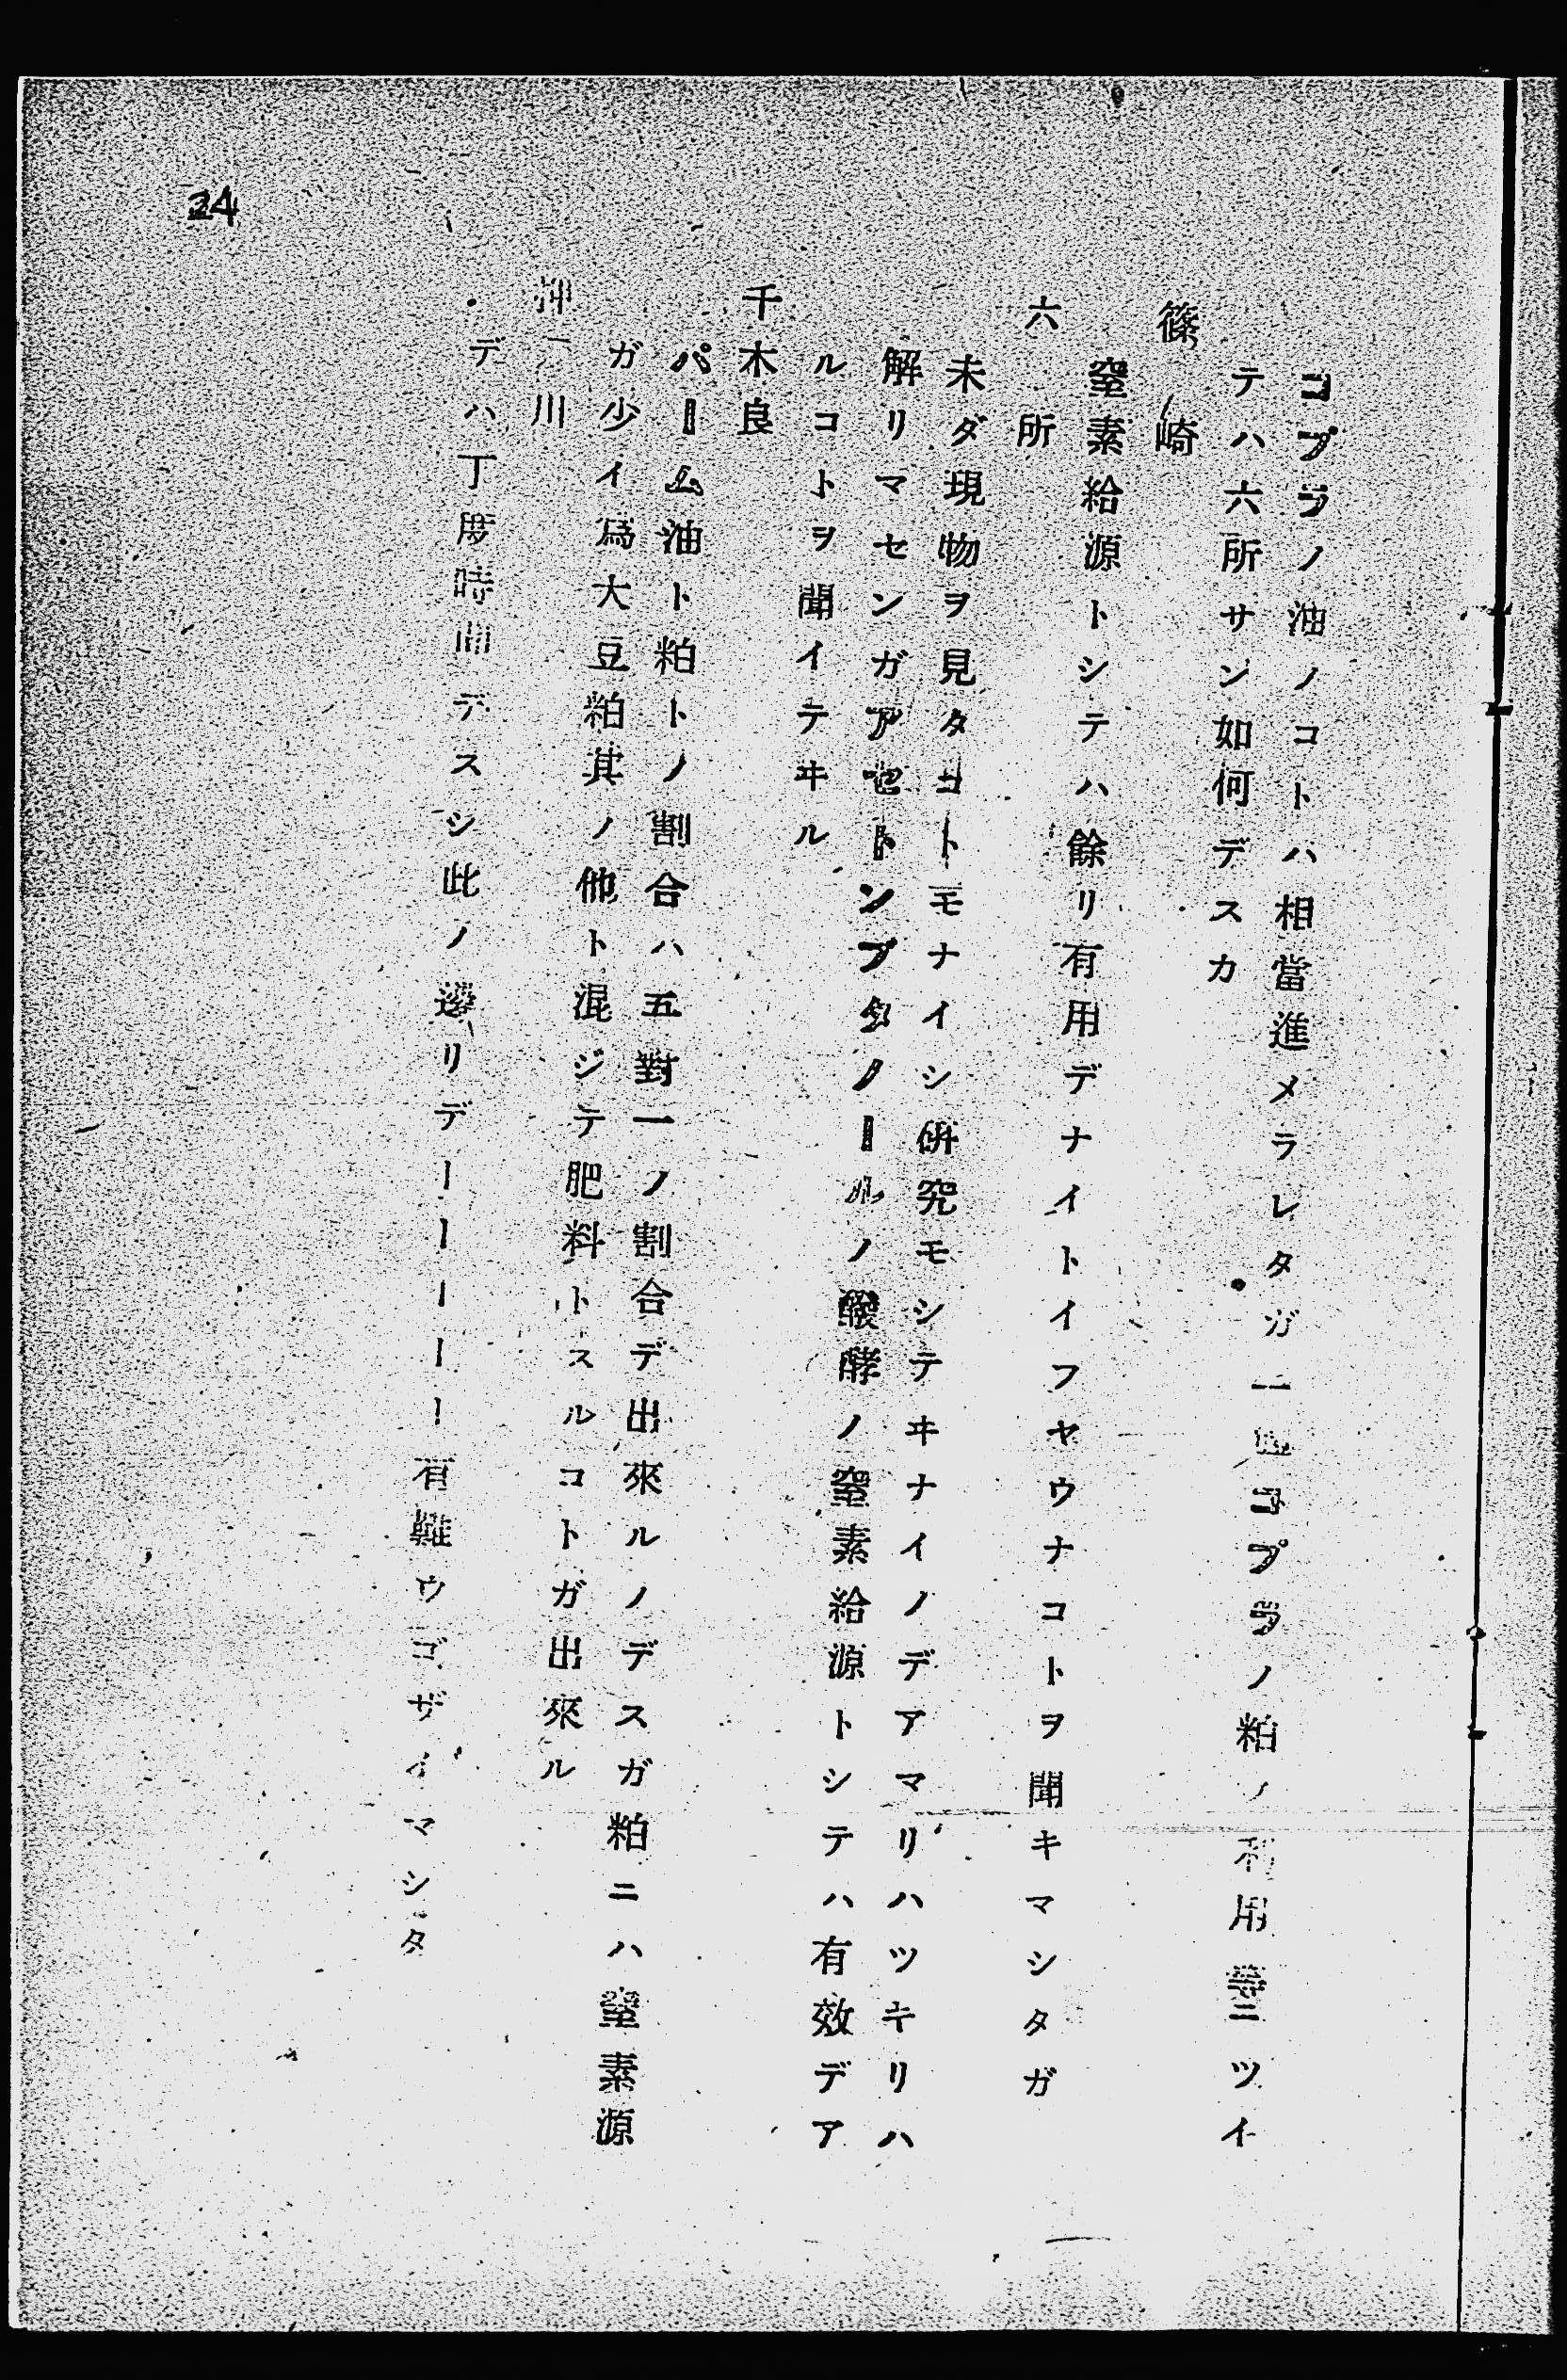 コプラノ油ノコトハ相當進メラレタガ一コプラノ粕ノ利用等ニツイ
テハ六所サン如何デスカ
篠崎
窒素給源トシテハ餘リ有用デナイトイフヤウナコトヲ聞キマシタガ
六所
未ダ現物ヲ見タコトモナイシ研究モシテヰナイノデアマリハツキリハ
解リマセンガアセトンブタノールノ醱酵ノ窒素給源トシテハ有效デア
ルコトヲ聞イテヰル
千木良
パーム油ト粕トノ割合ハ五對一ノ割合デ出來ルノデスガ粕ニハ窒素源
ガ少イ爲大豆粕其ノ他ト混ジテ肥料トスルコトガ出來ル
川
デハ丁度時間デスシ此ノ邊リデーーーーー有難ウゴザイマシタ
24